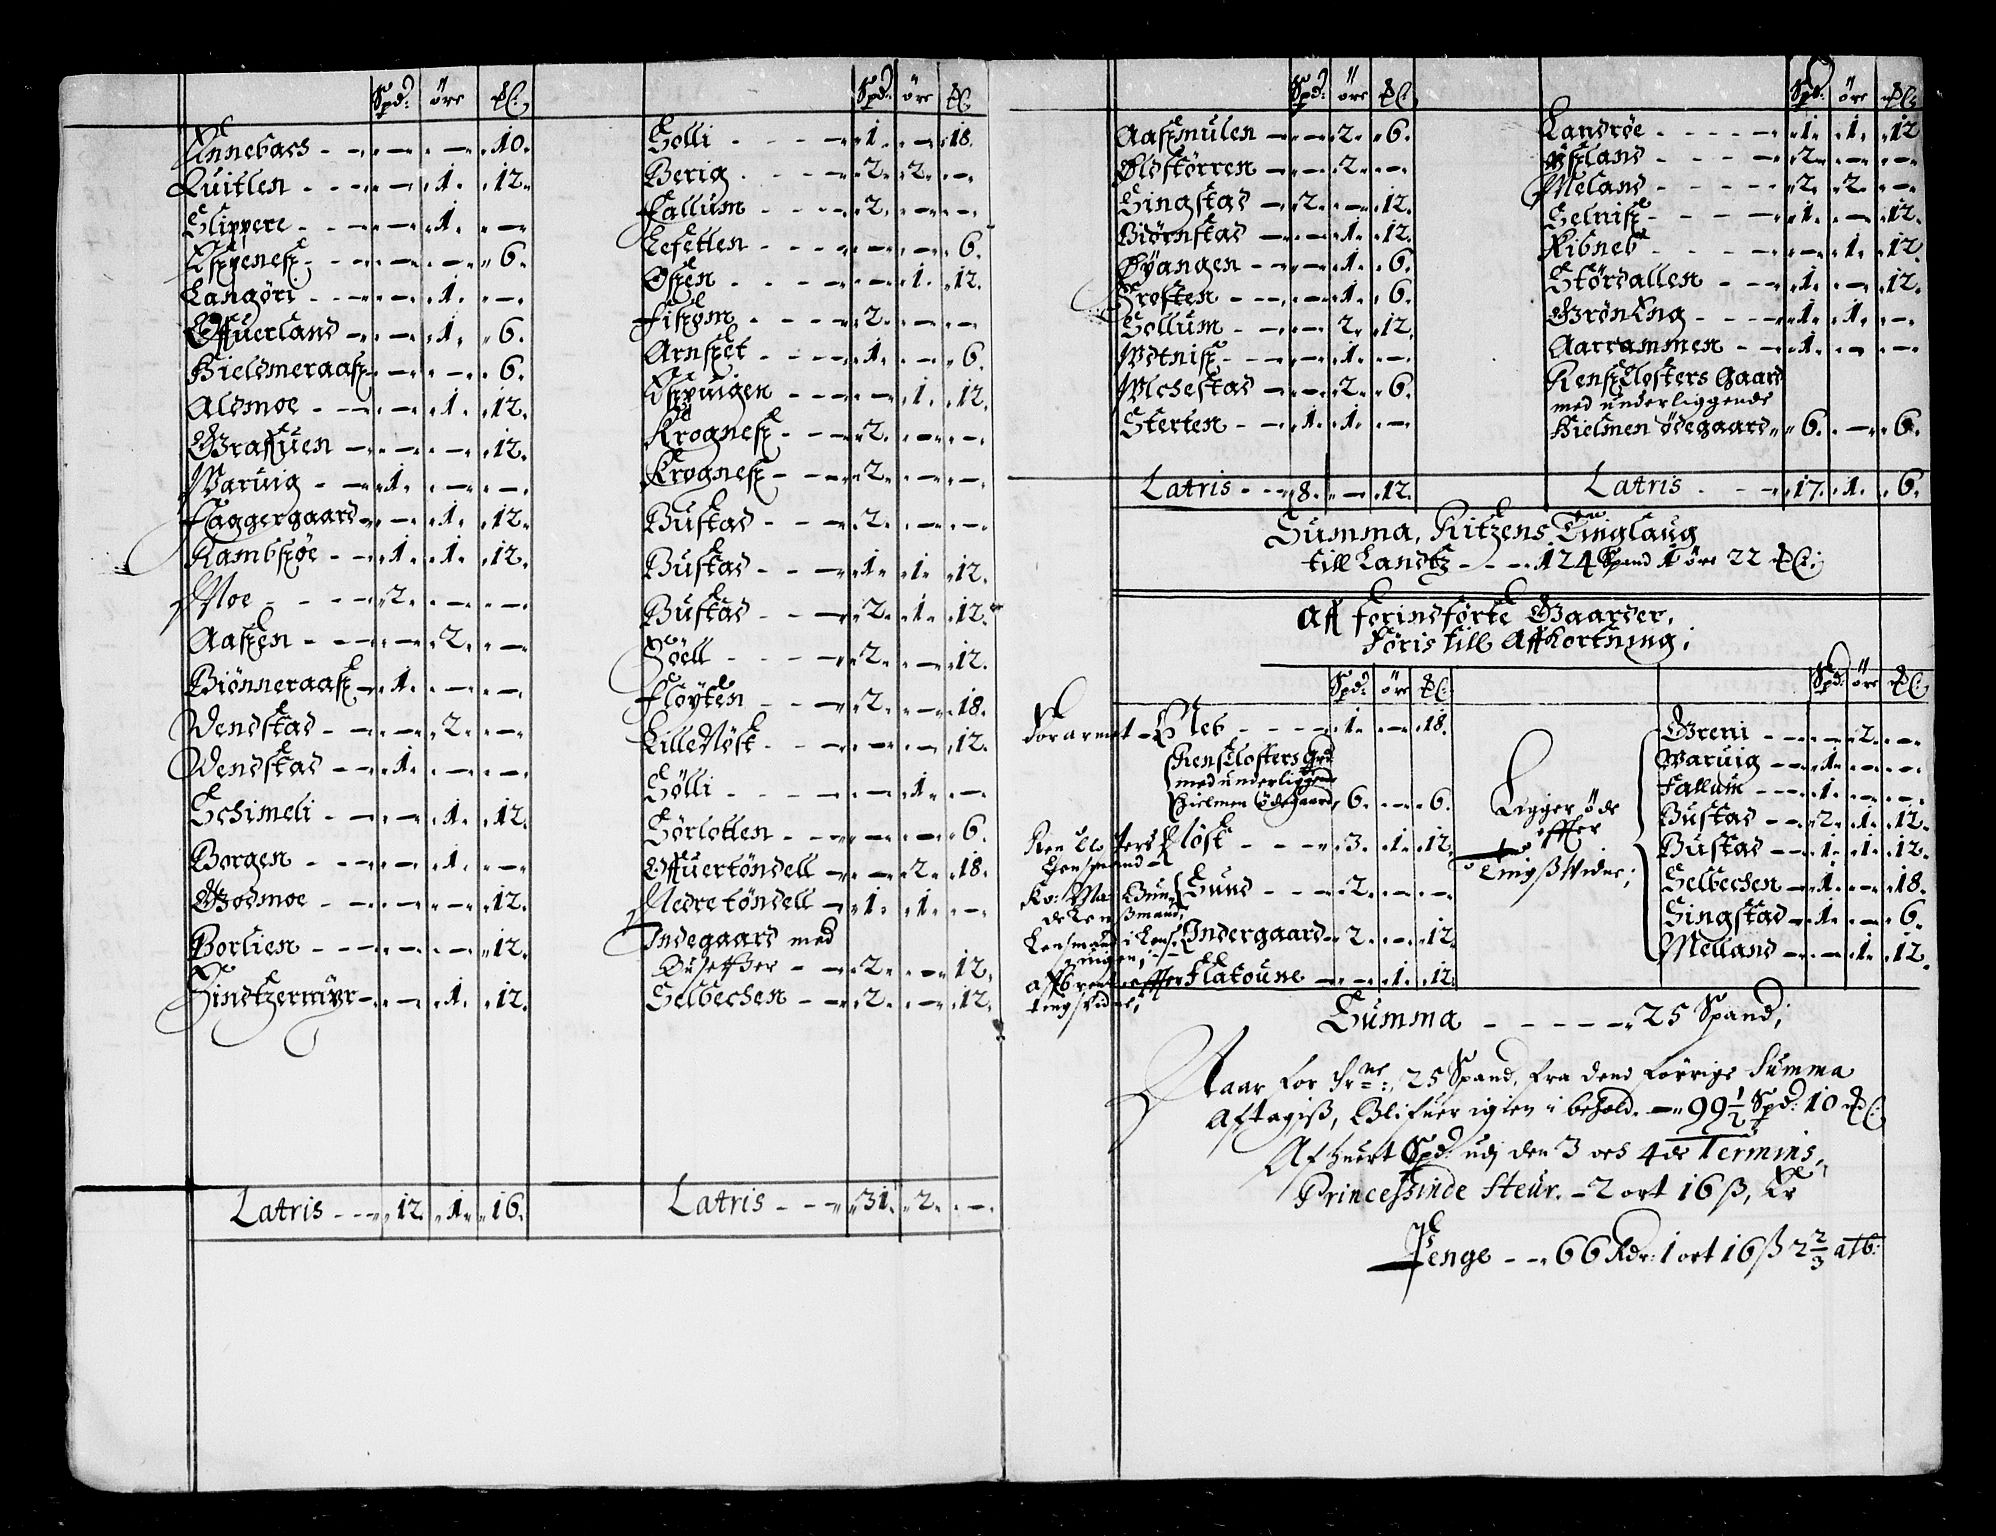 Spd: öre
Rennebach - - - - 10.
Quitlen - - - 1. 12.
Slippere - - - 1. - -
Espenes - - - - 6.
Langöri - - - 1. - -
Offuerland - - 1. 6.
Hieldmeraas - - - 6.
Aldmoe - - - 1. 12.
Graffuen - - - - 12.
Waruig - - 1. - - -
Haggergaard - - 1. 12.
Rambsøe - - 1. 1. 12.
Moe - - - 2. - - -
Aasen - - - - 2. - -
Biönneraas - 1. - - -
Wendstad - - - 2. - -
Wendstad - - 1. - - -
Schimeli - - - 1. 12.
Borgen - - - - 1. - -
Godmoe - - - - - 12.
Borlien - - - - - 12.
Hindtzermyr - - 1. 12.
Latris - - - 12. 1. 16.
Spd: öre
Solli - - - 1. - 18.
Berig - - - 2. 2. -
Fallum - - - 2. - - -
Lefetten - - - - - 6.
Osen - - - - 1. 12.
Fiskom - - - 2. - - -
Arnset - - - 1. - 6.
Espuigen - - - 1. 12.
Krognes - - - 2. - - -
Krognes - - - 2. - - -
Bustad - - - 2. - - -
Bustad - - - 1. 1. 12.
Bustad - - - 2. 1. 12.
Höll - - - 2. - 12.
Fløyten - - - 2. - 18.
Lille Nöst - - - - 12.
Sölli - - - - 1. - -
Sörlotten - - - - 6.
Offuertöndell - - 2. 18.
Nedretöndell - 1. 1. -
Indegaard med
Busetter - - 2. - 12.
Selbechen - - 2. - 12.
Latris - - - 31. 2. - -
Spd: öre
Aasmulen - - 2. 6.
Oldstörren - - 2. - -
Singstad - 2. - 12.
Biörnstad - - 1. 12.
Øyangen - - 1. 6.
Frosten - - - 1. 6.
Sollum - - - 2. 12.
Wotnis - - - 1. - -
Mchestad - - 2. 6.
Sterten - - 1. 1. - -
Latris - - 8. - 12.
Spd: öre
Landröe - - - - 1. 1. 12
Øsland - - - 2. - - -
Meland - - - - 2. 2. - -
Selnis - - - - 1. - 12.
Ribneb - - - - - 1. 12.
Stördallen - - 1. - 12.
Grön Eng - - - 1. 1. -
Aarrammen - - 1. - - -
Rensclosters Gaard
med underliggende
Hielmen ödegaard 6. - 6.
Latris - - - 17. 1. 6.
Summa, Ritzens Tinglaug
till Landtz - - - 124 Spand 1 öre 22
Aff forindförte Gaarder,
Föris till Affkortning;
Spd: öre
Forarmet - Neb - - - - 1. - 18.
Rensclosters Grd
med underliggen
Hielmen Ödegaard 6. - 6.
Rensclosters Flöst - - - 3. 1. 12.
Lensmand
Sund - - - 2. - - -
Lensmand i Lens Indergaard 2. - 12.
affbrendt effter Flatoune - - 1. 12.
tingsvidne;
Ligger öde
effter
Tingßvidne;
Spd: öre
Greni - - - - 2. - -
Waruig - - 1. - - -
Fallum - - 1. - - -
Bustad - - 2. 1. 12.
Bustad - - 1. 1. 12.
Selbechen - 1. - 18.
Singstad - 1. - 6.
Melland - - - 1. 12.
Summa - - - - - 25 Spand;
Naar for skr:ne: 25 Spand, fra dend forrige Summa
Aftagiß, Blifuer igien i behold. - 99 1/2 Spd: 10
Af huert Spd: udj den 3 och 4de Termins,
Princeßinde Steur. - 2 ort 16 ß, Er
Penge - - 66 Rdr: 1 ort 16 ß 2 2/3 alb: